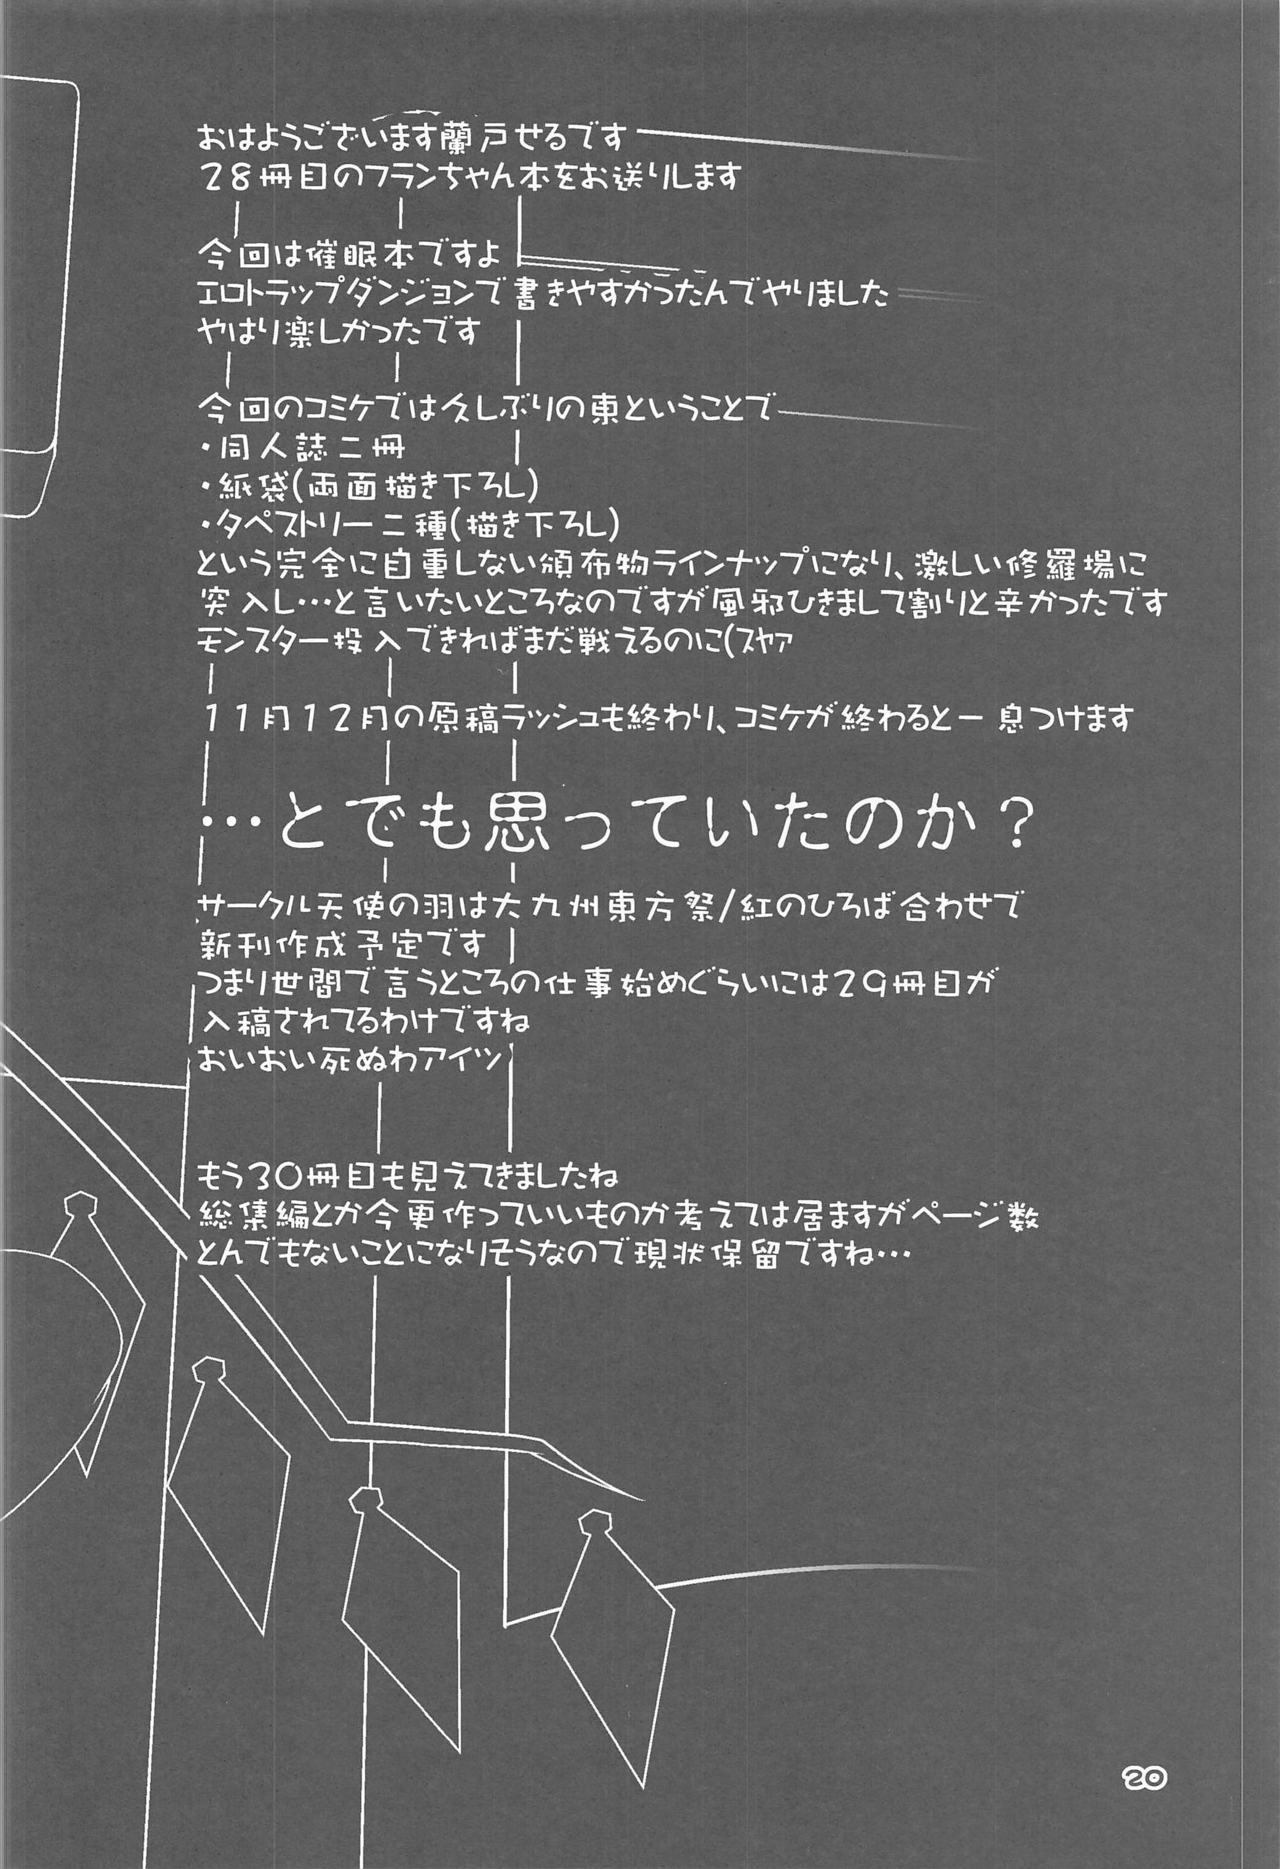 おはようございます蘭戸せるです
２８冊目のフランちゃん本をお送りします
今回は催眠本ですよ
エロトラップダンジョンで書きやすかったんでやりました
やはり楽しかったです
今回のコミケでは久しぶりの東ということで
・同人誌二冊
・紙袋(両面描き下ろし)
・タペストリー二種(描き下ろし)
という完全に自重しない頒布物ラインナップになり、激しい修羅場に
突入し…と言いたいところなのですが風邪ひきまして割りと辛かったです
モンスター投入できればまだ戦えるのに(ｽﾔｧ
１１月１２月の原稿ラッシュも終わり、コミケが終わると一息つけます
…とでも思っていたのか？
サークル天使の羽は大九州東方祭/紅のひろば合わせで
新刊作成予定です
つまり世間で言うところの仕事始めぐらいには２９冊目が
入稿されてるわけですね
おいおい死ぬわアイツ
もう３０冊目も見えてきましたね
総集編とか今更作っていいものか考えては居ますがページ数
とんでもないことになりそうなので現状保留ですね…
20